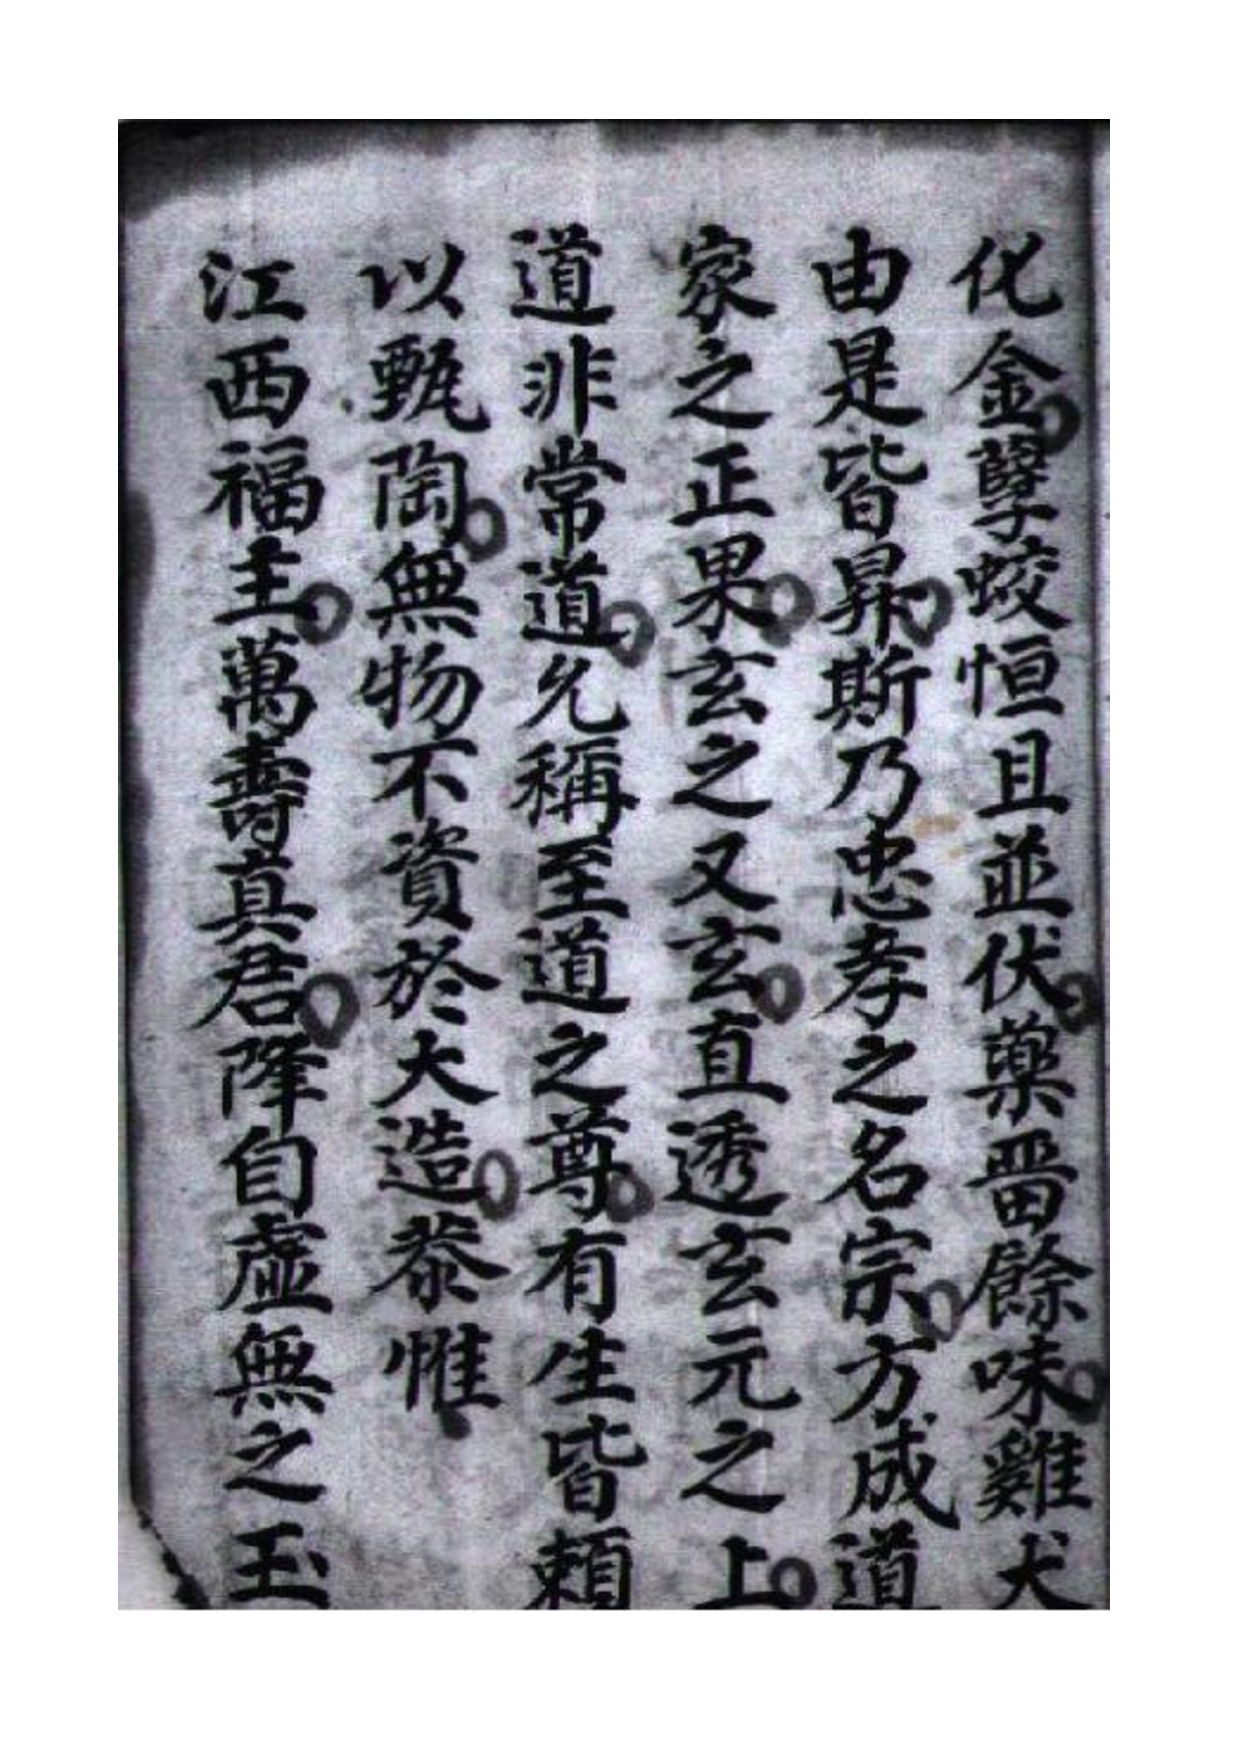 化金孽蛟恒且並伏藥畱餘味雞犬
由是皆昇斯乃忠孝之名宗方成道
家之正果玄之又玄直透玄元之上
道非常道允稱至道之尊有生皆頼
以甄陶無物不資於大造恭惟
江西福主萬壽真君降自虛無之玉